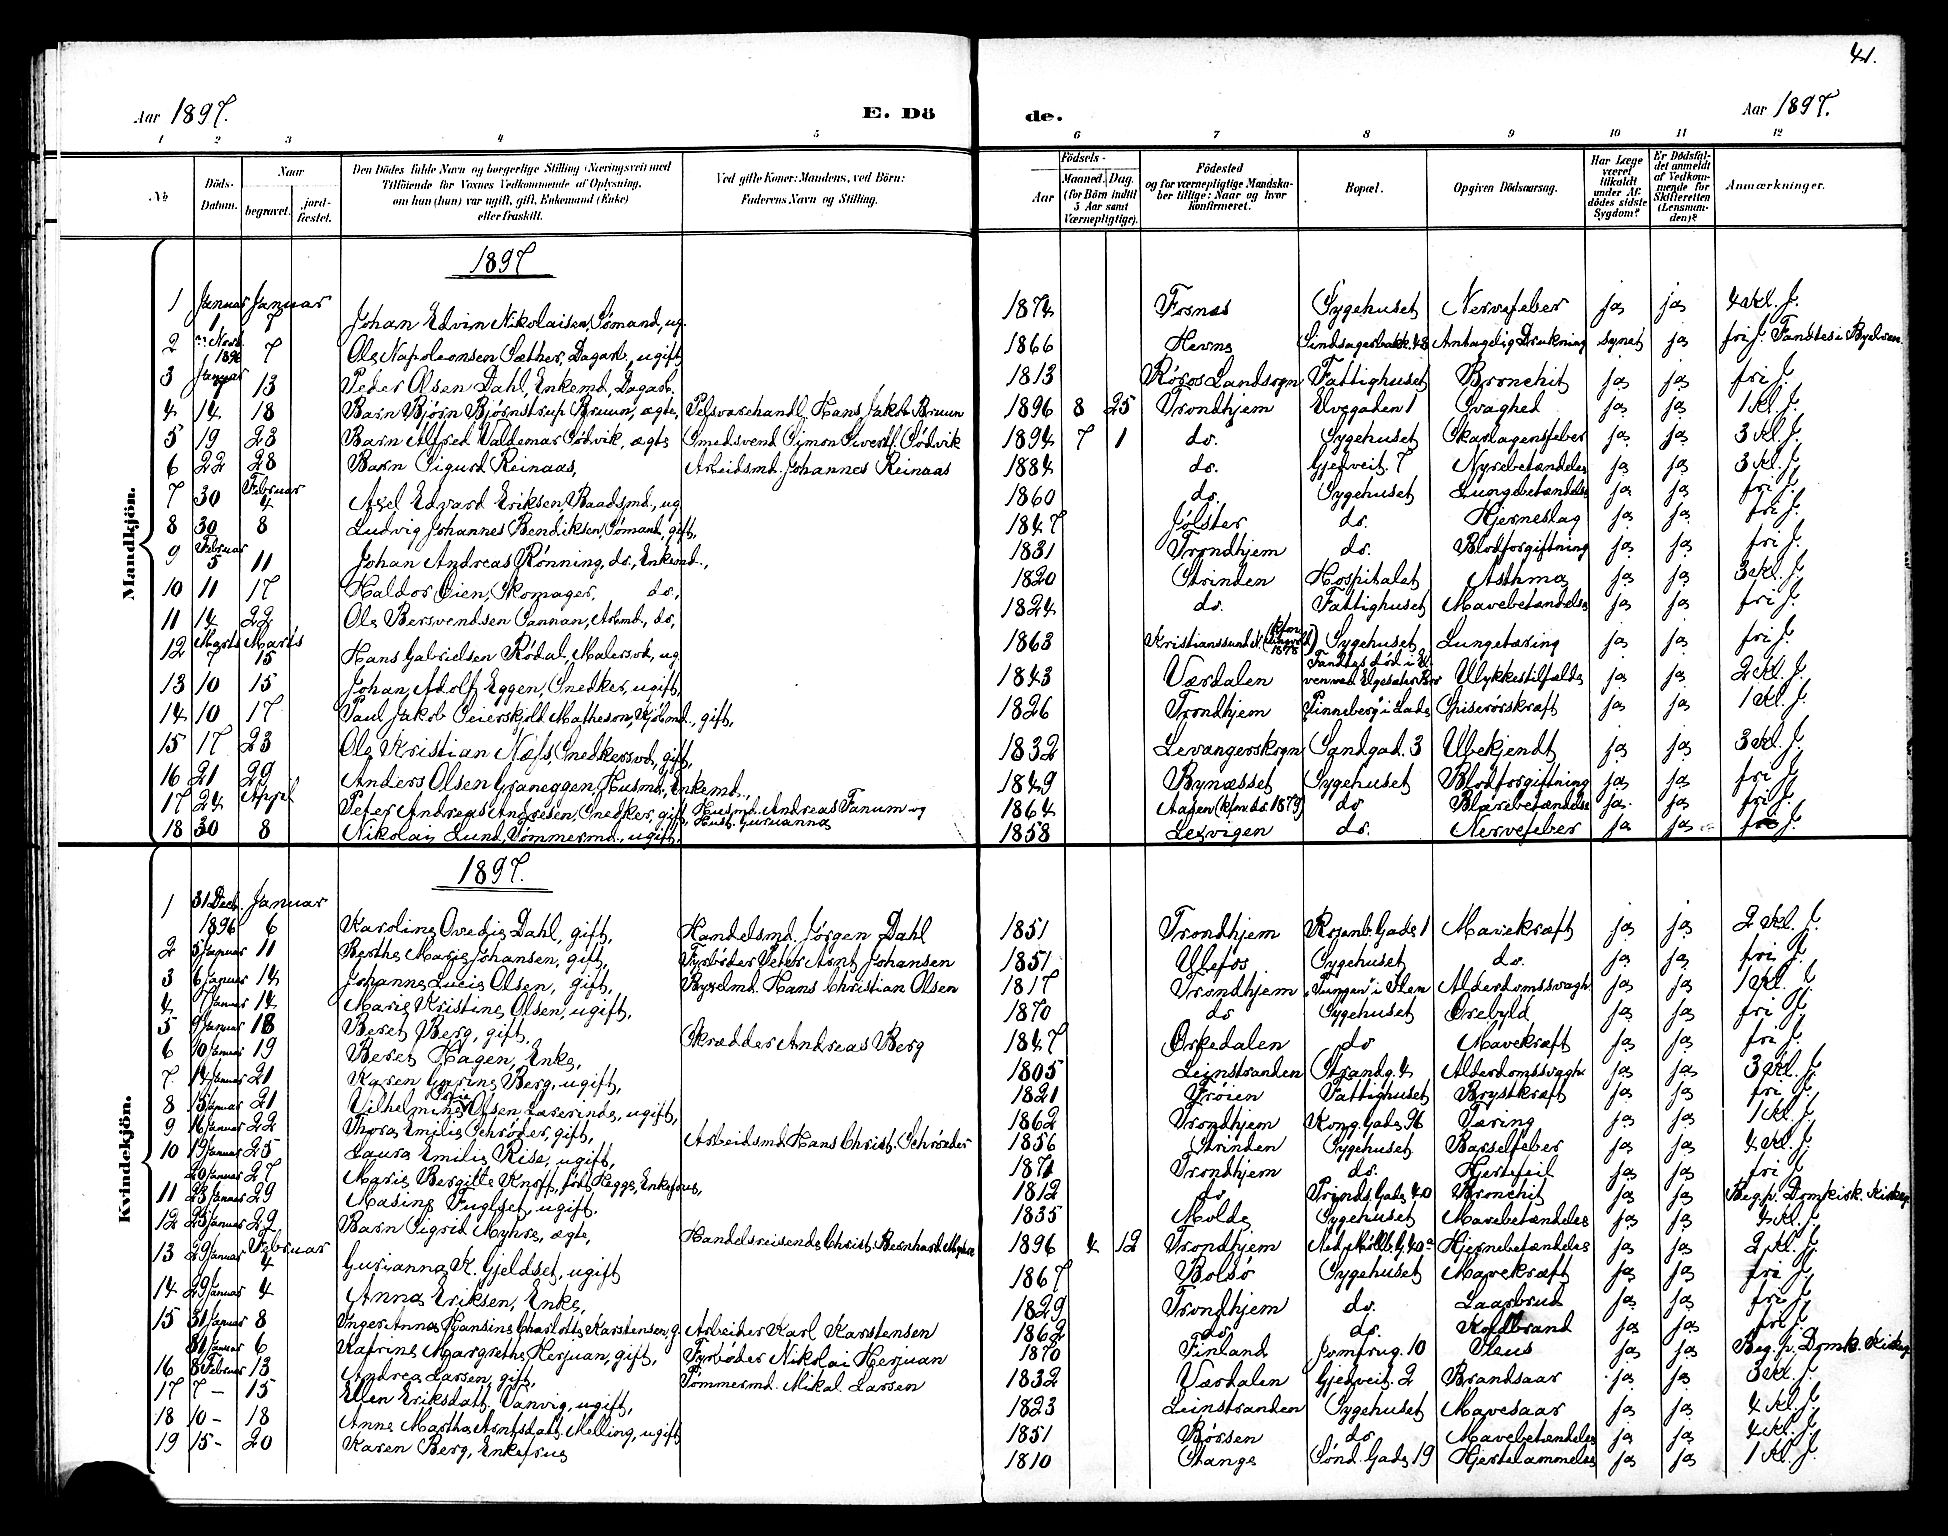 41.
Aar 1897. E. Dö de. Aar 1897.
1 2 3 4 5 6 7 8 9 10 11 12
№ Döds-Datum. Naar begravet. jord-fæstet. Den Dödes fulde Navn og borgerlige Stilling (Næringsvei) med Tilföiende for Voxnes Vedkommende af Oplysning, om han (hun) var ugift, gift, Enkemand (Enke) eller fraskilt. Ved gifte Koner: Mandens, ved Börn: Faderens Navn og Stilling. Födsels- Aar Maaned. Dag. (for Börn indtil 5 Aar samt Værnepligtige). Födested og for værnepligtige Mandska-ber tillige: Naar og hvor konfirmeret. Bopæl. Opgiven Dödsaarsag. Har Læge været tilkaldt under Af-dödes sidste Sygdom? Er Dödsfal-det anmeldt af Vedkom-mende for Skifteretten (Lensman-den)? Anmærkninger.
Mandkjön.
1897
1 Januar 1 Januar 7 Johan Edvin Nikolaisen, Sømand, ug. 1874 Fosnæs Sygehuset Nervefeber ja ja 4 Kl. J.
2 Novb. 1896 7 Ole Napoleonsen Sæther, Dagarb., ugift 1866 Hevne Lindsagerbakk. 48 Antagelig Drukning synet ja fri J. Fandtes i Byelven.
3 Januar 7 13 Peder Olsen Dahl, Enkemd., Dagarb. 1813 Røros Landsogn Fattighuset Bronchit ja ja fri J.
4 14 18 Barn Bjørn Bjørnstrup Bruun, ægte, Pelsvarehandl. Hans Jakob Bruun 1896 8 25 Trondhjem Elvegaden 1 Svaghed ja ja 1 Kl. J.
5 19 23 Barn Alfred Valdemar Sødvik, ægte Smedsvend Symon Sivertf. Sødvik 1894 7 1 do. Sygehuset Skarlagensfeber ja ja 3 Kl. J.
6 22 28 Barn Sigurd Reinaas, Arbeidsmd. Johannes Reinaas 1884 do. Gjetveit. 7 Nyrebetændelse ja ja 3 Kl. J.
7 30 Februar 4 Axel Edvard Eriksen, Baadsmd., ug 1860 do. Sygehuset Lungebetændelse ja ja fri J.
8 30 8 Ludvig Johannes Bendiksen, Sømand, gift, 1847 Jølster do. Hjerneslag ja ja fri J.
9 Februar 5 11 Johan Andreas Rønning, do., Enkemd., 1831 Trondhjem do. Blodforgiftning ja ja fri J.
10 11 17 Haldor Øien, Skomager, do, 1820 Strinden Hospitalet Asthma ja ja 3 Kl. J.
11 14 22 Ole Bersvendsen Sannan, Arbmd., do, 1824 do. Fattighuset Mavebetændelse ja ja fri J.
12 Marts 7 Marts 15 Hans Gabrielsen Rødal, Malersvd., ug 1863 Kristianssund N. Sygehuset Lungetæring ja ja fri J.
13 10 15 Johan Adolf Eggen, Snedker, ugift, 1843 Værdalen Fandtes død i El-ven ved Elgesæter Bro Ulykkestilfælde ja ja 2 Kl. J.
14 10 17 Paul Jakob Seierskjold Matheson, Kjøbmd., gift, 1826 Trondhjem Pinneberg i Lade Spiserørskræft ja ja 1 Kl. J.
15 17 23 Ole Kristian Næss, Snedkersvd., gift, 1832 Levangerskogn Sandgad. 3 Ubekjendt ja ja 3 Kl. J.
16 21 29 Anders Olsen Graneggen, Husmd., Enkemd., 1849 Bynæsset Sygehuset Blodforgiftning ja ja fri J.
17 24 April Peter Andreas Andresen, Snedker, gift, Husmd. Andreas Fanum og Hust. Gurianna 1864 Aasen (kfm. do. 1879) do Blærebetændelse ja ja fri J.
18 30 8 Nikolai Lund, Tømmermd., ugift, 1858 Lexvigen do. Nervefeber ja ja fri J.
Kvindekjön.
1897.
1 31 Decb. 1896 Januar 6 Karoline Ovedie Dahl, gift, Handelsmd. Jørgen Dahl 1851 Trondhjem Rosenb. Gade 1 Mavekræft ja ja 2 Kl. J.
2 5 Januar 11 Berthe Marie Johansen, gift, Fyrbøder Peter Arnt Johansen 1851 Ulefos Sygehuset do. ja ja fri J.
3 6 Januar 14 Johanne Lucie Olsen, gift, Byselmd. Hans Christian Olsen 1817 Trondhjem Tungen i Ilen Alderdomssvagh. ja ja 1 Kl. J.
4 7 Januar 14 Marie Kristine Olsen, ugift, 1870 do Sygehuset Ørebyld ja ja fri J.
5 9 Januar 18 Beret Berg, gift, Skrædder Andreas Berg 1847 Orkedalen do Mavekræft ja ja fri J.
6 10 Januar 19 Beret Hagen, Enke, 1805 Leinstranden Strandg. 4 Alderdomssvagh. ja ja 3 Kl. J.
7 14 Januar 21 Karen Gurine Berg, ugift, 1821 Frøien Fattighuset Brystkræft ja ja fri J.
8 15 Januar 21 Vilhelmine Olsen, Lærerinde, ugift, 1862 Trondhjem Kong. Gade 96 Tæring ja ja 1 Kl. J.
9 16 Januar 22 Thora Emilie Schrøder, gift, Arbeidsmd. Hans Christ. Schrøder 1856 Strinden Sygehuset Barselfeber ja ja 4 Kl. J.
10 19 Januar 25 Laura Emilie Rise, ugift, 1871 Trondhjem do. Hjertefeil ja ja fri J.
20 Januar 27 Marie Bergitte Knoff, født Hegge, Enkefrue, 1812 do Prinds. Gade 40 Bronchit ja ja Beg. p. Domkirk. Kirkeg.
11 23 Januar 29 Masine Fuglset, ugift, 1835 Molde Sygehuset Mavebetændelse ja ja 4 Kl. J.
12 25 Januar 29 Barn Sigrid Myhre, ægte, Handelsreisende Christ. Bernhard Myhre 1896 4 12 Trondhjem Ned. Møllb. G. 40a Hjernebetændelse ja ja 2 Kl. J.
13 29 Januar Februar 4 Gurianna K. Gjeldset, ugift 1867 Bolsø Sygehuset Mavekræft ja ja fri J.
14 29 Januar 4 Anna Eriksen, Enke, 1829 Trondhjem do. Laarbrud ja ja fri J.
15 31 Januar 8 Inger Anna Hansine Charlotte Karstensen, g. Arbeider Karl Karstensen 1862 do. do. Koldbrand ja ja fri J.
31 Januar 6 Katrine Margrethe Herjuan, gift, Fyrbøder Nikolai Herjuan 1870 Finland Jomfrug. 10 Ileus ja ja Beg. p. Domk. Kirkeg.
16 8 Februar 13 Andrea Larsen, gift, Tømmermd. Mikal Larsen 1832 Værdalen Gjetveit. 2 Brandsaar ja ja 3 Kl. J.
17 7 – 15 Ellen Eriksdatt. Vanvig, ugift, 1823 Leinstranden Sygehuset Mavesaar ja ja 4 Kl. J.
18 10 – 18 Anne Martha Arntsdatt. Melling, ugift 1851 Børsen do Mavebetændelse ja ja 4 Kl. J.
19 15 – 20 Karen Berg, Enkefrue 1810 Stange Sønd. Gade 19 Hjertelammelse ja ja 1 Kl. J.